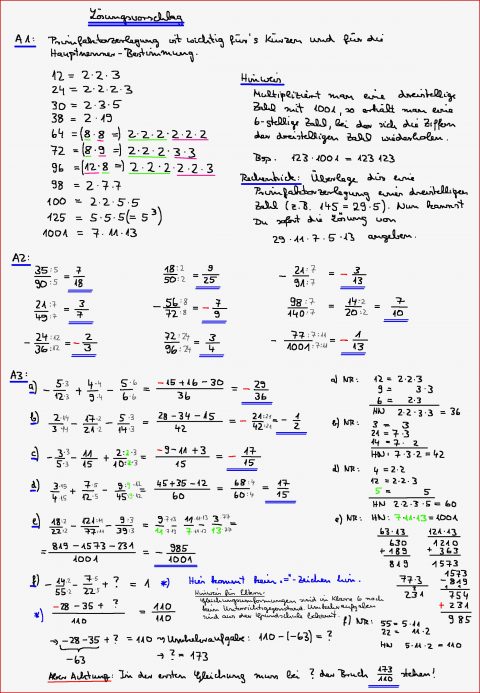 Lösungsvorschlag
A1: Primfaktorzerlegung ist wichtig für's Kürzen und für die
Hauptnenner-Bestimmung.
12 = 2·2·3
24 = 2·2·2·3
30 = 2·3·5
38 = 2·19
64 = (8·8 =) 2·2·2·2·2·2
72 = (8·9 =) 2·2·2·3·3
96 = (12·8 =) 2·2·2·2·2·3
98 = 2·7·7
100 = 2·2·5·5
125 = 5·5·5 (= 5³)
1001 = 7·11·13
Hinweis
Multipliziert man eine dreistellige
Zahl mit 1001, so erhält man eine
6-stellige Zahl, bei der sich die Ziffern
der dreistelligen Zahl wiederholen.
Bsp. 123·1001 = 123 123
Rechentrick: Überlege dir eine
Primfaktorzerlegung einer dreistelligen
Zahl (z.B. 145 = 29·5). Nun kannst
Du sofort die Lösung von
29·11·7·5·13 angeben.
A2:
35:5/90:5 = 7/18 18:2/50:2 = 9/25 - 21:7/91:7 = - 3/13
21:7/49:7 = 3/7 - 56:8/72:8 = - 7/9 98:7/140:7 = 14:2/20:2 = 7/10
- 24:12/36:12 = - 2/3 72:24/96:24 = 3/4 - 77:7:11/1001:7:11 = - 1/13
A3:
a) - 5·3/12·3 + 4·4/9·4 - 5·6/6·6 = -15+16-30/36 = - 29/36
b) 2·14/3·14 - 17·2/21·2 - 5·3/14·3 = 28-34-15/42 = - 21:21/42:21 = - 1/2
c) - 3·3/5·3 - 11/15 + 2:2·3/10:2·3 = -9-11+3/15 = - 17/15
d) 3·15/4·15 + 7·5/12·5 - 9·12/45 = 45+35-12/60 = 68:4/60:4 = 17/15
e) 18:2/22:2 - 121:11/77:11 - 9:3/39:3 = 9·7·13/11·7·13 - 11·11·13/7·11·13 - 3·77/13·77 =
= 819-1573-231/1001 = - 985/1001
f) - 14·2/55·2 - 7·5/22·5 + ? = 1 *) Hier kommt kein „="-Zeichen hin.
*) -28-35+?/110 = 110/110
Hinweis für Eltern:
Gleichungsumformungen sind in Klasse 6 noch
kein Unterrichtsgegenstand. Umkehraufgaben
sind aus der Grundschule bekannt.
→ -28-35+? = 110 → Umkehraufgabe: 110-(-63) = ?
-63
→ ? = 173
Aber Achtung: In der ersten Gleichung muss bei ? der Bruch 173/110 stehen!
a) NR: 12 = 2·2·3
9 = 3·3
6 = 2·3
HN 2·2·3·3 = 36
b) NR: 3 = 3
21 = 7·3
14 = 7·2
HN: 7·3·2 = 42
d) NR: 4 = 2·2
12 = 2·2·3
5 = 5
HN 2·2·3·5 = 60
e) NR: HN: 7·11·13 = 1001
63·13
630
+189
819
121·13
1210
+ 363
1573
77·3
231
1573
- 819
754
+ 231
985
f) NR: 55 = 5·11
22 = 11·2
HN 5·11·2 = 110